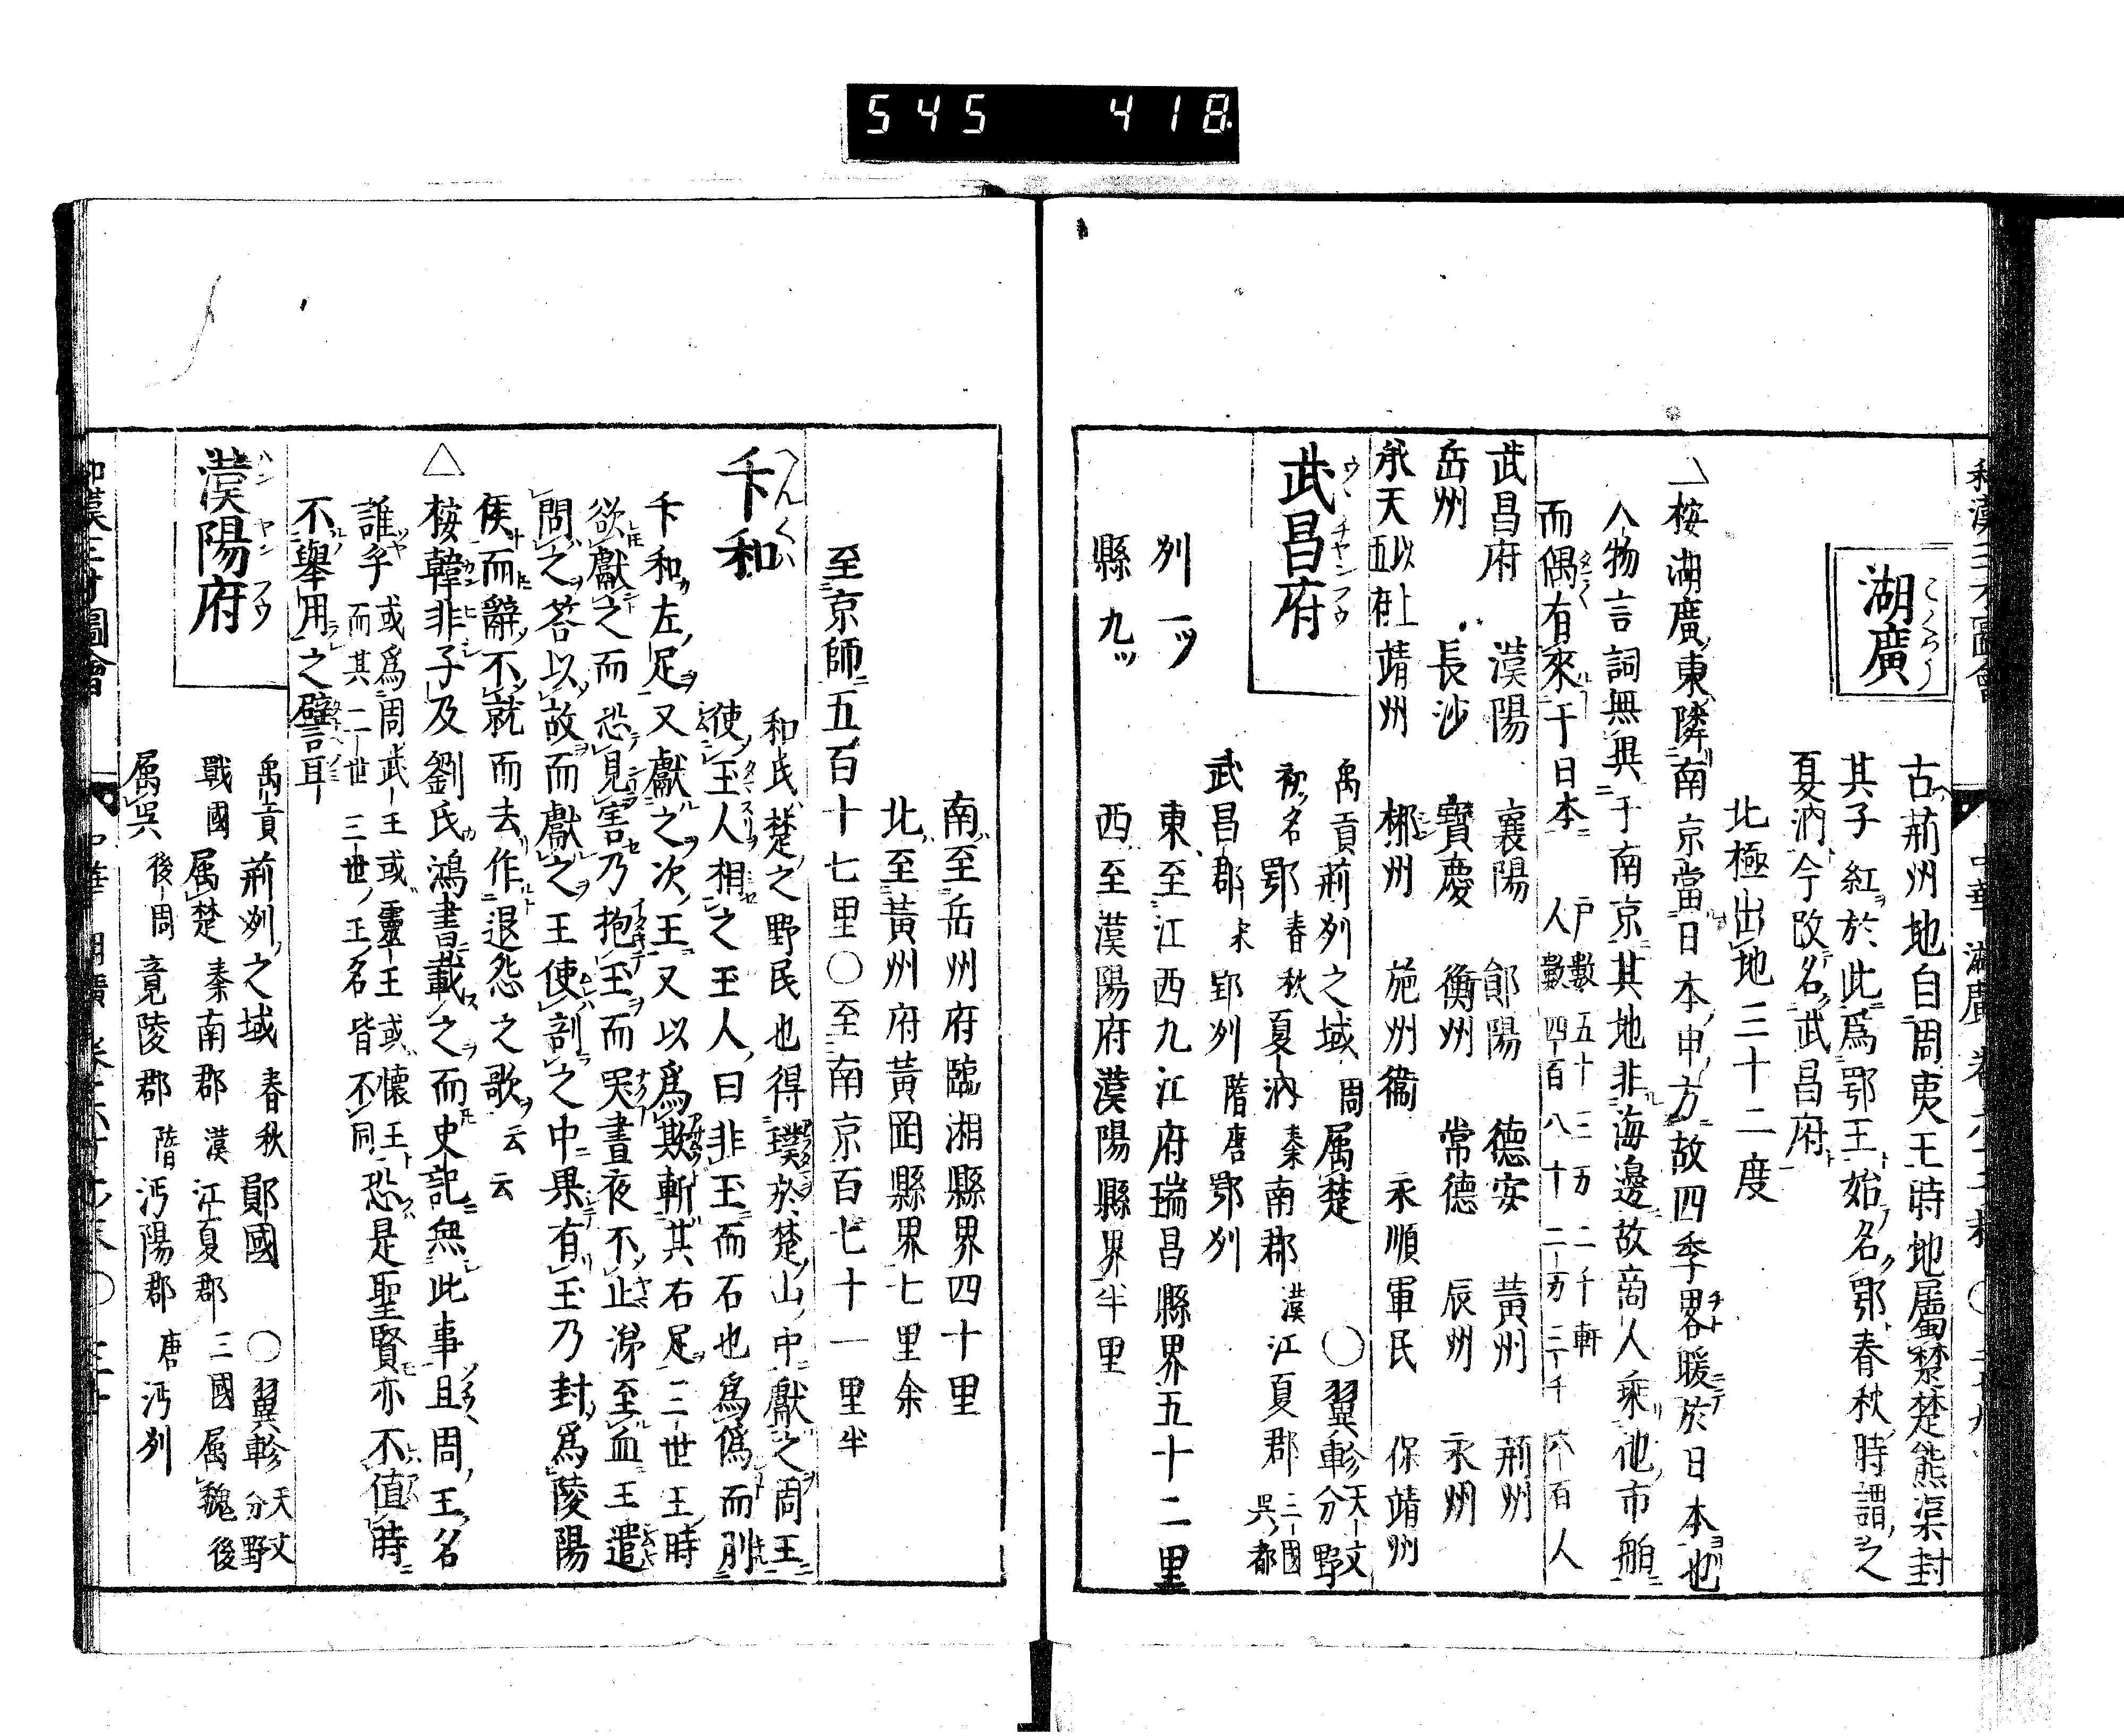 545 418
湖廣
古荊州地自周夷王時地屬楚楚熊渠封
其子紅於此爲鄂王始名鄂春秋時謂之
夏汭今改名武昌府
北極出地三十二度
按湖廣東隣南京當日本申方故四季畧暖於日本也
人物言詞無異于南京其地非海邊故商人乘他市舶
而偶有來于日本 戸數五十三万二千軒
人數四百八十二万三千六百人
武昌府 漢陽 襄陽 鄖陽 德安 黃州 荊州
岳州 長沙 寶慶 衡州 常德 辰州 永州
承天 以上五府 靖州 郴州 施州衞 永順軍民 保靖州
武昌府
ウヽ チヤン フウ
禹貢荊州之域 周屬楚 〇翼軫天文分野
初名鄂 春秋夏汭 秦南郡 漢江夏郡 三國吳都
武昌郡 宋郢州 隋唐鄂州
州一ツ 東至江西九江府瑞昌縣界五十二里
縣九ツ 西至漢陽府漢陽縣界半里
南至岳州府臨湘縣界四十里
北至黃州府黃岡縣界七里余
至京師五百十七里〇至南京百七十一里半
卞和
和氏楚之野民也得璞於楚山中獻之周王
使玉人相之玉人曰非玉而石也爲僞而刖
卞和左足又獻之次王又以爲欺斬其右足三世王時
欲獻之而恐見害乃抱玉而哭晝夜不止涕至血王遣
問之荅以故而獻之王使剖之中果有玉乃封爲陵陽
侯而辭不就而去作退怨之歌云云
△
按韓非子及劉氏鴻書載之而史記無此事且周王名
誰乎 或爲周武王或靈王或懷王
而其二世三世王名皆不同 恐是聖賢亦不値時
不舉用之譬言耳
漢陽府
ハン ヤン フウ
禹貢荊州之域 春秋鄖國 〇翼軫天文分野
戰國屬楚 秦南郡 漢江夏郡 三國屬魏後
屬吳 後周竟陵郡 隋沔陽郡 唐沔州